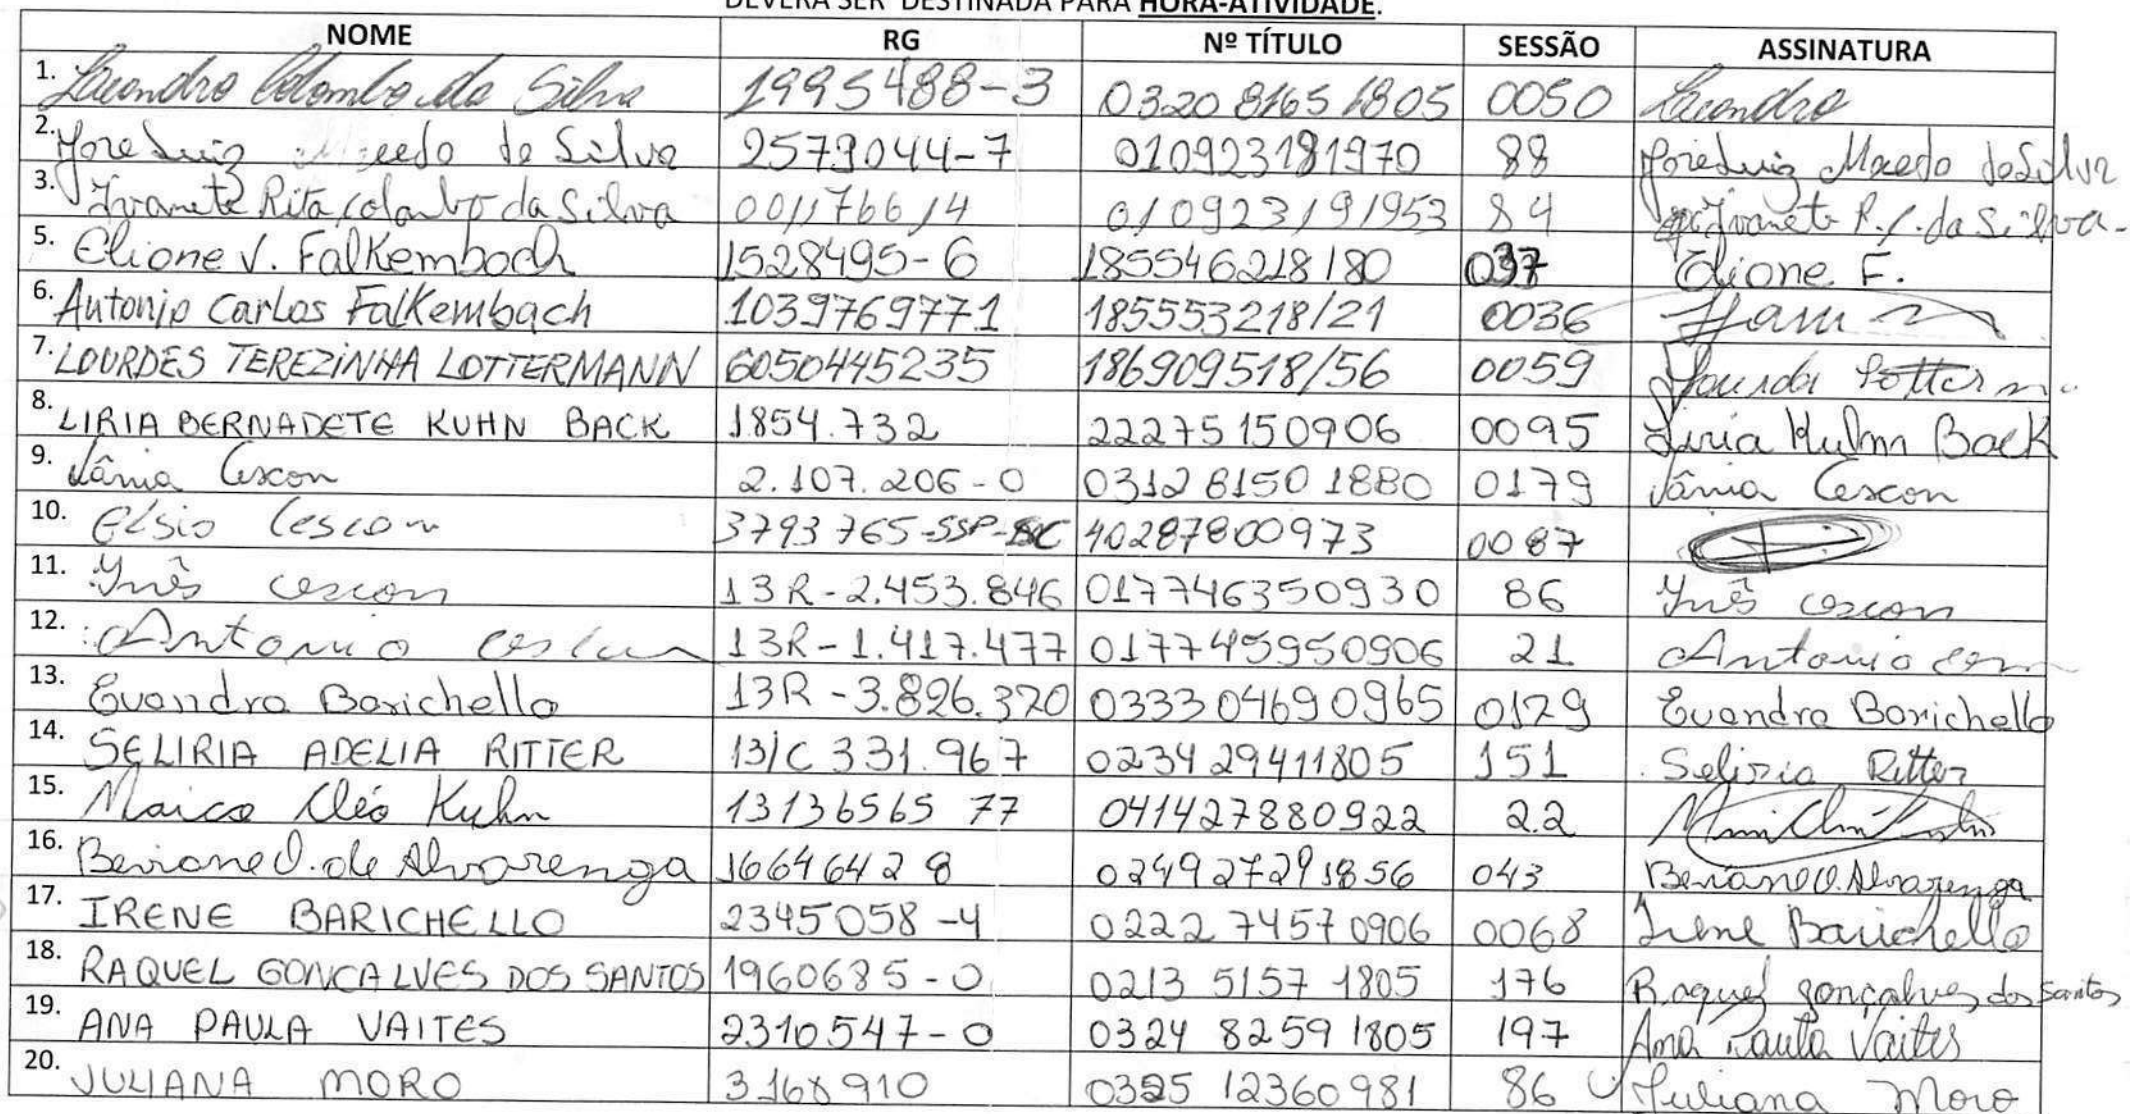 DEVERÁ SER DESTINADA PARA HORA-ATIVIDADE.
NOME RG Nº TÍTULO SESSÃO ASSINATURA
1. Leandro Colombo da Silva 1995488-3 0320 8165 1805 0050 Leandro
2. Jore Luiz Macedo da Silva 2579044-7 010923181970 88 Jore Luiz Macedo da Silva
3. Ivanete Rita Colombo da Silva 001176614 010923191953 84 Ivanete R. C. da Silva
5. Elione V. Falkembach 1528495-6 185546218180 037 Elione F.
6. Antonio Carlos Falkembach 1039769771 185553218/21 0036
7. LOURDES TEREZINHA LOTTERMANN 6050445235 186909518/56 0059
8. LIRIA BERNADETE KUHN BACK 1854.732 22275150906 0095 Liria Kuhn Back
9. Vânia Cescon 2.107.206-0 0312 8150 1880 0179 Vânia Cescon
10. Elsio Cescon 3793765-SSP-SC 40287800973 0087
11. Inês Cescon 13R-2.453.846 017746350930 86 Inês Cescon
12. Antonio Cescon 13R-1.417.477 017745950906 21 Antonio
13. Evandra Barichello 13R-3.826.320 033304690965 0129 Evandra Barichello
14. SELIRIA ADELIA RITTER 13/C 331.967 0234 29411805 151 Seliria Ritter
15. Maico Cléo Kuhn 13136565 77 041427880922 22
16. Beviane O. de Alvarenga 16646428 024927291856 043 Beviane O. Alvarenga
17. IRENE BARICHELLO 2345058-4 0222 7457 0906 0068 Irene Barichello
18. RAQUEL GONCALVES DOS SANTOS 1960685-0 0213 5157 1805 176 Raquel gonçalves dos Santos
19. ANA PAULA VAITES 2310547-0 0324 8259 1805 197 Ana Paula Vaites
20. JULIANA MORO 3168910 0325 12360981 86 Juliana Moro